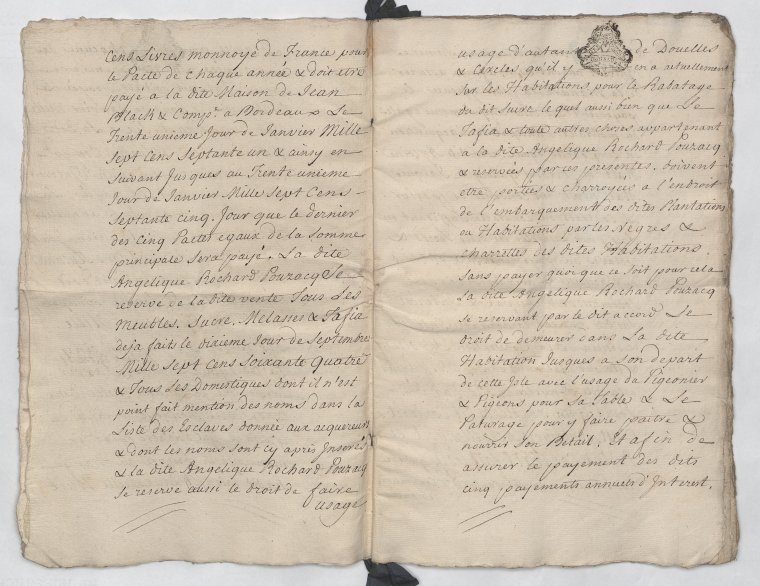 Cens Livres monnoye de France pour
le Pacte de Chaque année & doit etre
payé a la dite Maison de Jean
Black & Comp.e a Bordeaux Le
Trente unieme Jour de Janvier Mille
Sept Cens Septante un & ainsy en
Suivant Jusques au Trente unieme
Jour de Janvier Mille Sept Cens
Septante Cinq. Jour que le dernier
des Cinq Pactes egaux de la Somme
principale Sera payé. La dite
Angelique Rochard Pouzacq Se
reserve de la dite vente Tous Les
Meubles, Sucre, Melasses & Tafia
deja faits le dixieme Jour de Septembre
Mille Sept Cens Soixante Quatre
& Tous Ses Domestiques dont il n'est
point fait mention des noms dans la
Liste des Esclaves donnée aux acquereurs
& dont les noms sont cy après Inserés
& la dite Angelique Rochard Pouzacq
Se reserve aussi le droit de faire
usage
usage d'autant de Douelles
& Cercles qu'il y en a actuellement
sur les Habitations pour le Rabatage
du dit Sucre le quel aussi bien que Le
Tafia & toute autres choses appartenant
a la dite Angelique Rochard Pouzacq
& reservées par ces presentes, doivent
etre portées & charroyées a l'endroit
de l'embarquement des dites Plantations
ou Habitations par les Negres &
charrettes des dites Habitations.
Sans payer quoi que ce soit pour cela
La dite Angelique Rochard Pouzacq
se reservant par le dit accord Le
droit de demeurer dans La dite
Habitation Jusques a son depart
de cette Isle avec l'usage du Pigeonier
& Pigeons pour sa table & Le
Paturage pour y faire paitre &
nourrir Son Betail, Et afin de
assurer le payement des dits
cinq payements annuels d'Interest.